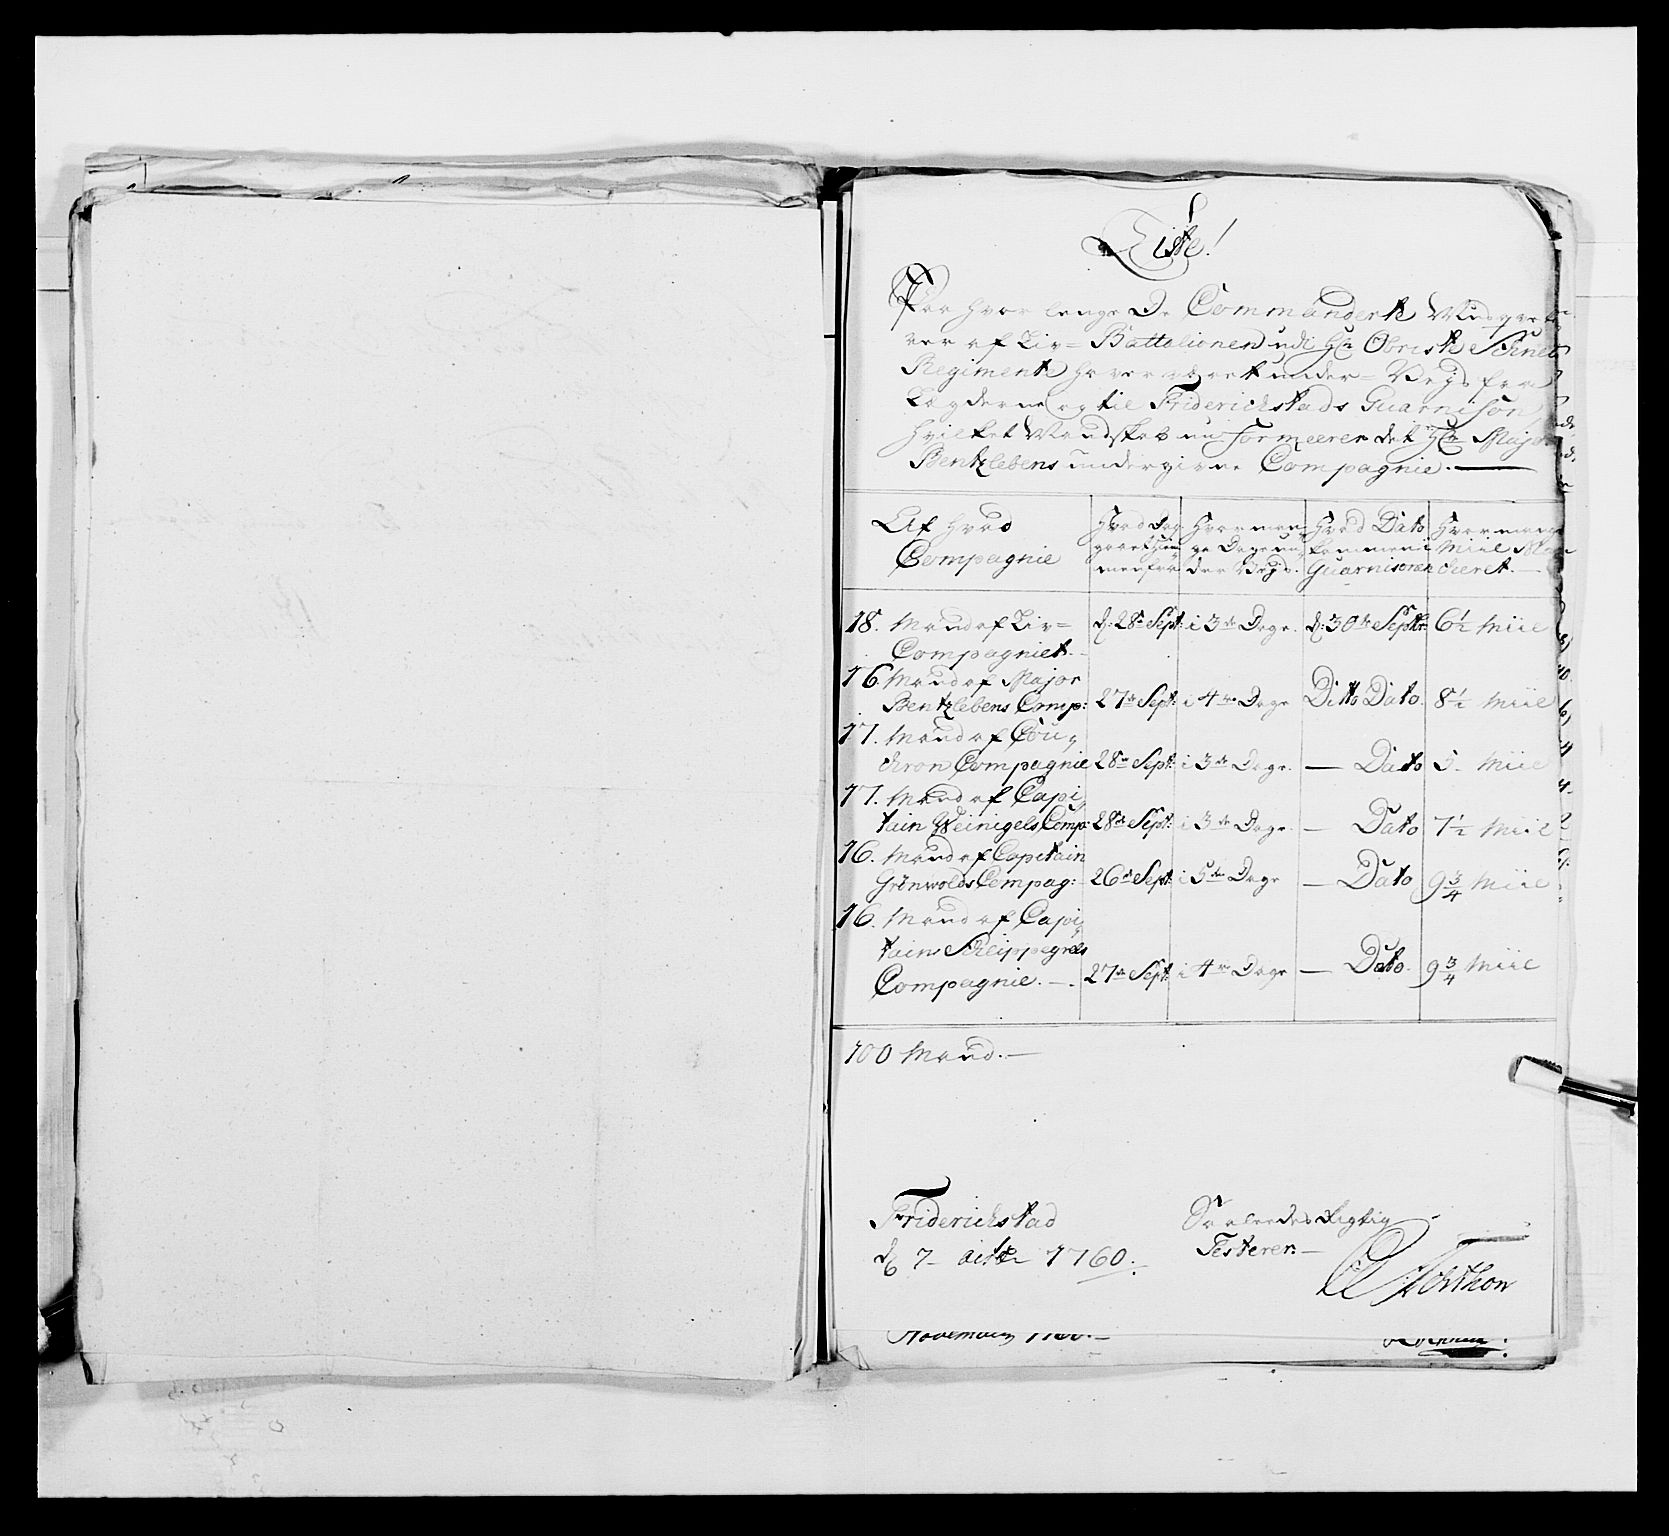 Liste!
Paa hvor lenge De Commanderte Mandqva
rer af Liv= Battalionen udi Hr: Obrist Schnel
Regimente ha ver været under= Veÿs fra
Lægderne og til Friderichstads Guarnison
hvilket Mandskab nu formeerer det Hr: Major
Bentzlebens undergivne Compagnie.
Af hvad
Compagnie
Hvad Dag
gaaet
men fra
Hvor man
ge Dage un
der Veÿs.
Hvad Dato
kommen i
Guarnisonen
Hvor mange
Miil Mar
cheret.
18. Mand af Liv=
Compagniet.
d: 28de Sept: i 3de Dage. d: 30te Septbr: 6½ Miil
16. Mand af Major
Bentzlebens Comp: 27de Sept: i 4re Dage Ditto Dato. 8½ Miil
17. Mand af Cou=
chron Compagnie 28de Sept: i 3de Dage. — Dato 5- Miil
17. Mand af Capi=
tain Weinigels Comp: 28de Sept: i 3de Dage. — Dato 7½ Miil
16. Mand af Capitain
Grünwolds Compag: 26de Sept: i 5te Dage — Dato 9¾ Miil
16. Mand af Capi=
tains Schlippegrels
Compagnie. 27de Sept: i 4re Dage — Dato. 9¾ Miil
100 Mand.
Friderichstad
d 7- 1760.
Saaledes Rigtig
Testerer.
November 1760.